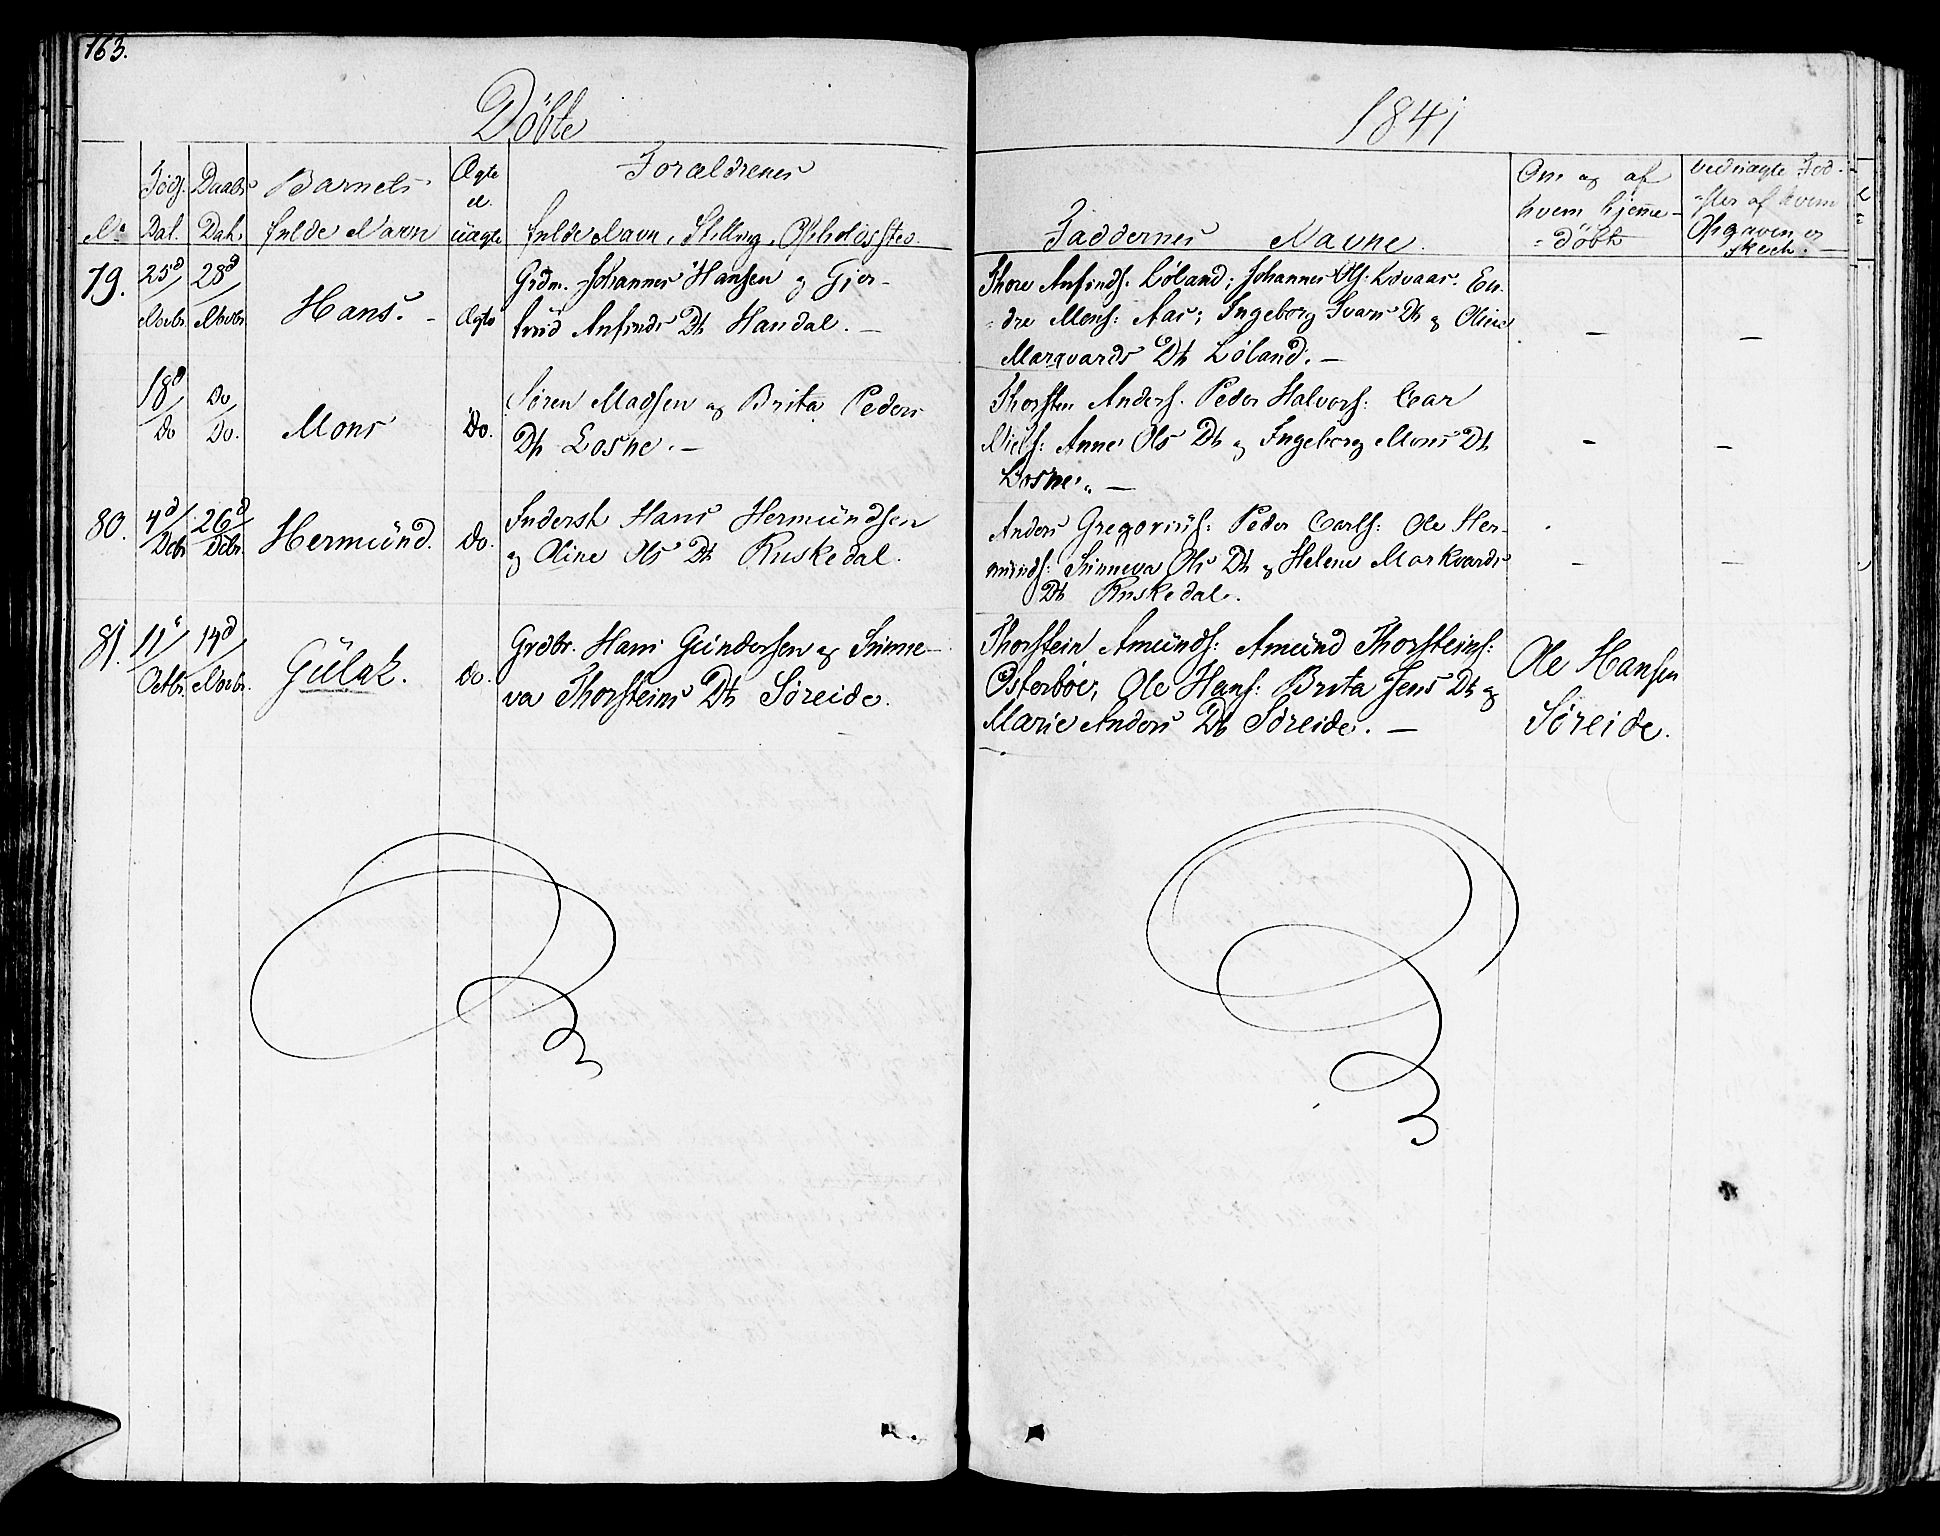 163.
Döbte
1841
Föds. Daabs Barnets Ægte Forældrenes
el.
No Dat. Dat. fulde Navn uægte fulde Navn, Stilling, Opholdssted.
Faddernes Navne.
Om og af
hvem hjemme-
döbt
ved uægte Fød-
sler af hvem
Opgaven er
skeet.
79. 25d 28d
Novbr. Novbr. Hans. Ægte
Grdm. Johannes Hansen og Gjer-
trud Anfinds Dt Handal. —
Thore Anfinds: Løland; Johannes Ols: Løvaas. En-
dre Mons: Aas; Ingeborg Ivars Dt og Oline
Marqvards Dt Løland. —
— —
18d Do
Do Do. Mons Do.
Søren Madsen og Brita Peders
Dt Losne. —
Thorsten Anders. Peder Halvors:
Niels: Anne Ols Dt og Ingeborg Mons Dt
Losne. —
— —
80. 4d 26d
Dcbr. Dcbr. Hermünd. Do.
Inderst Hans Hermündsen
og Oline Ols Dt Ruskedal.
Anders Gregoriüs: Peder Carls: Ole Her-
münds: Sünneva Ols Dt og Helene Markvards
Dt Ruskedal.
— —
81. 11 14d
Octbr. Novbr. Gülak. Do.
Grdbr. Hans Gündersen og Sünne-
va Thorsteins Dt Søreide.
Thorstein Amünds: Amünd Thorsteins:
Osterböe, Ole Hans: Brita Jens Dt og
Marie Anders Dt Søreide. —
Ole Hansen
Søreide.